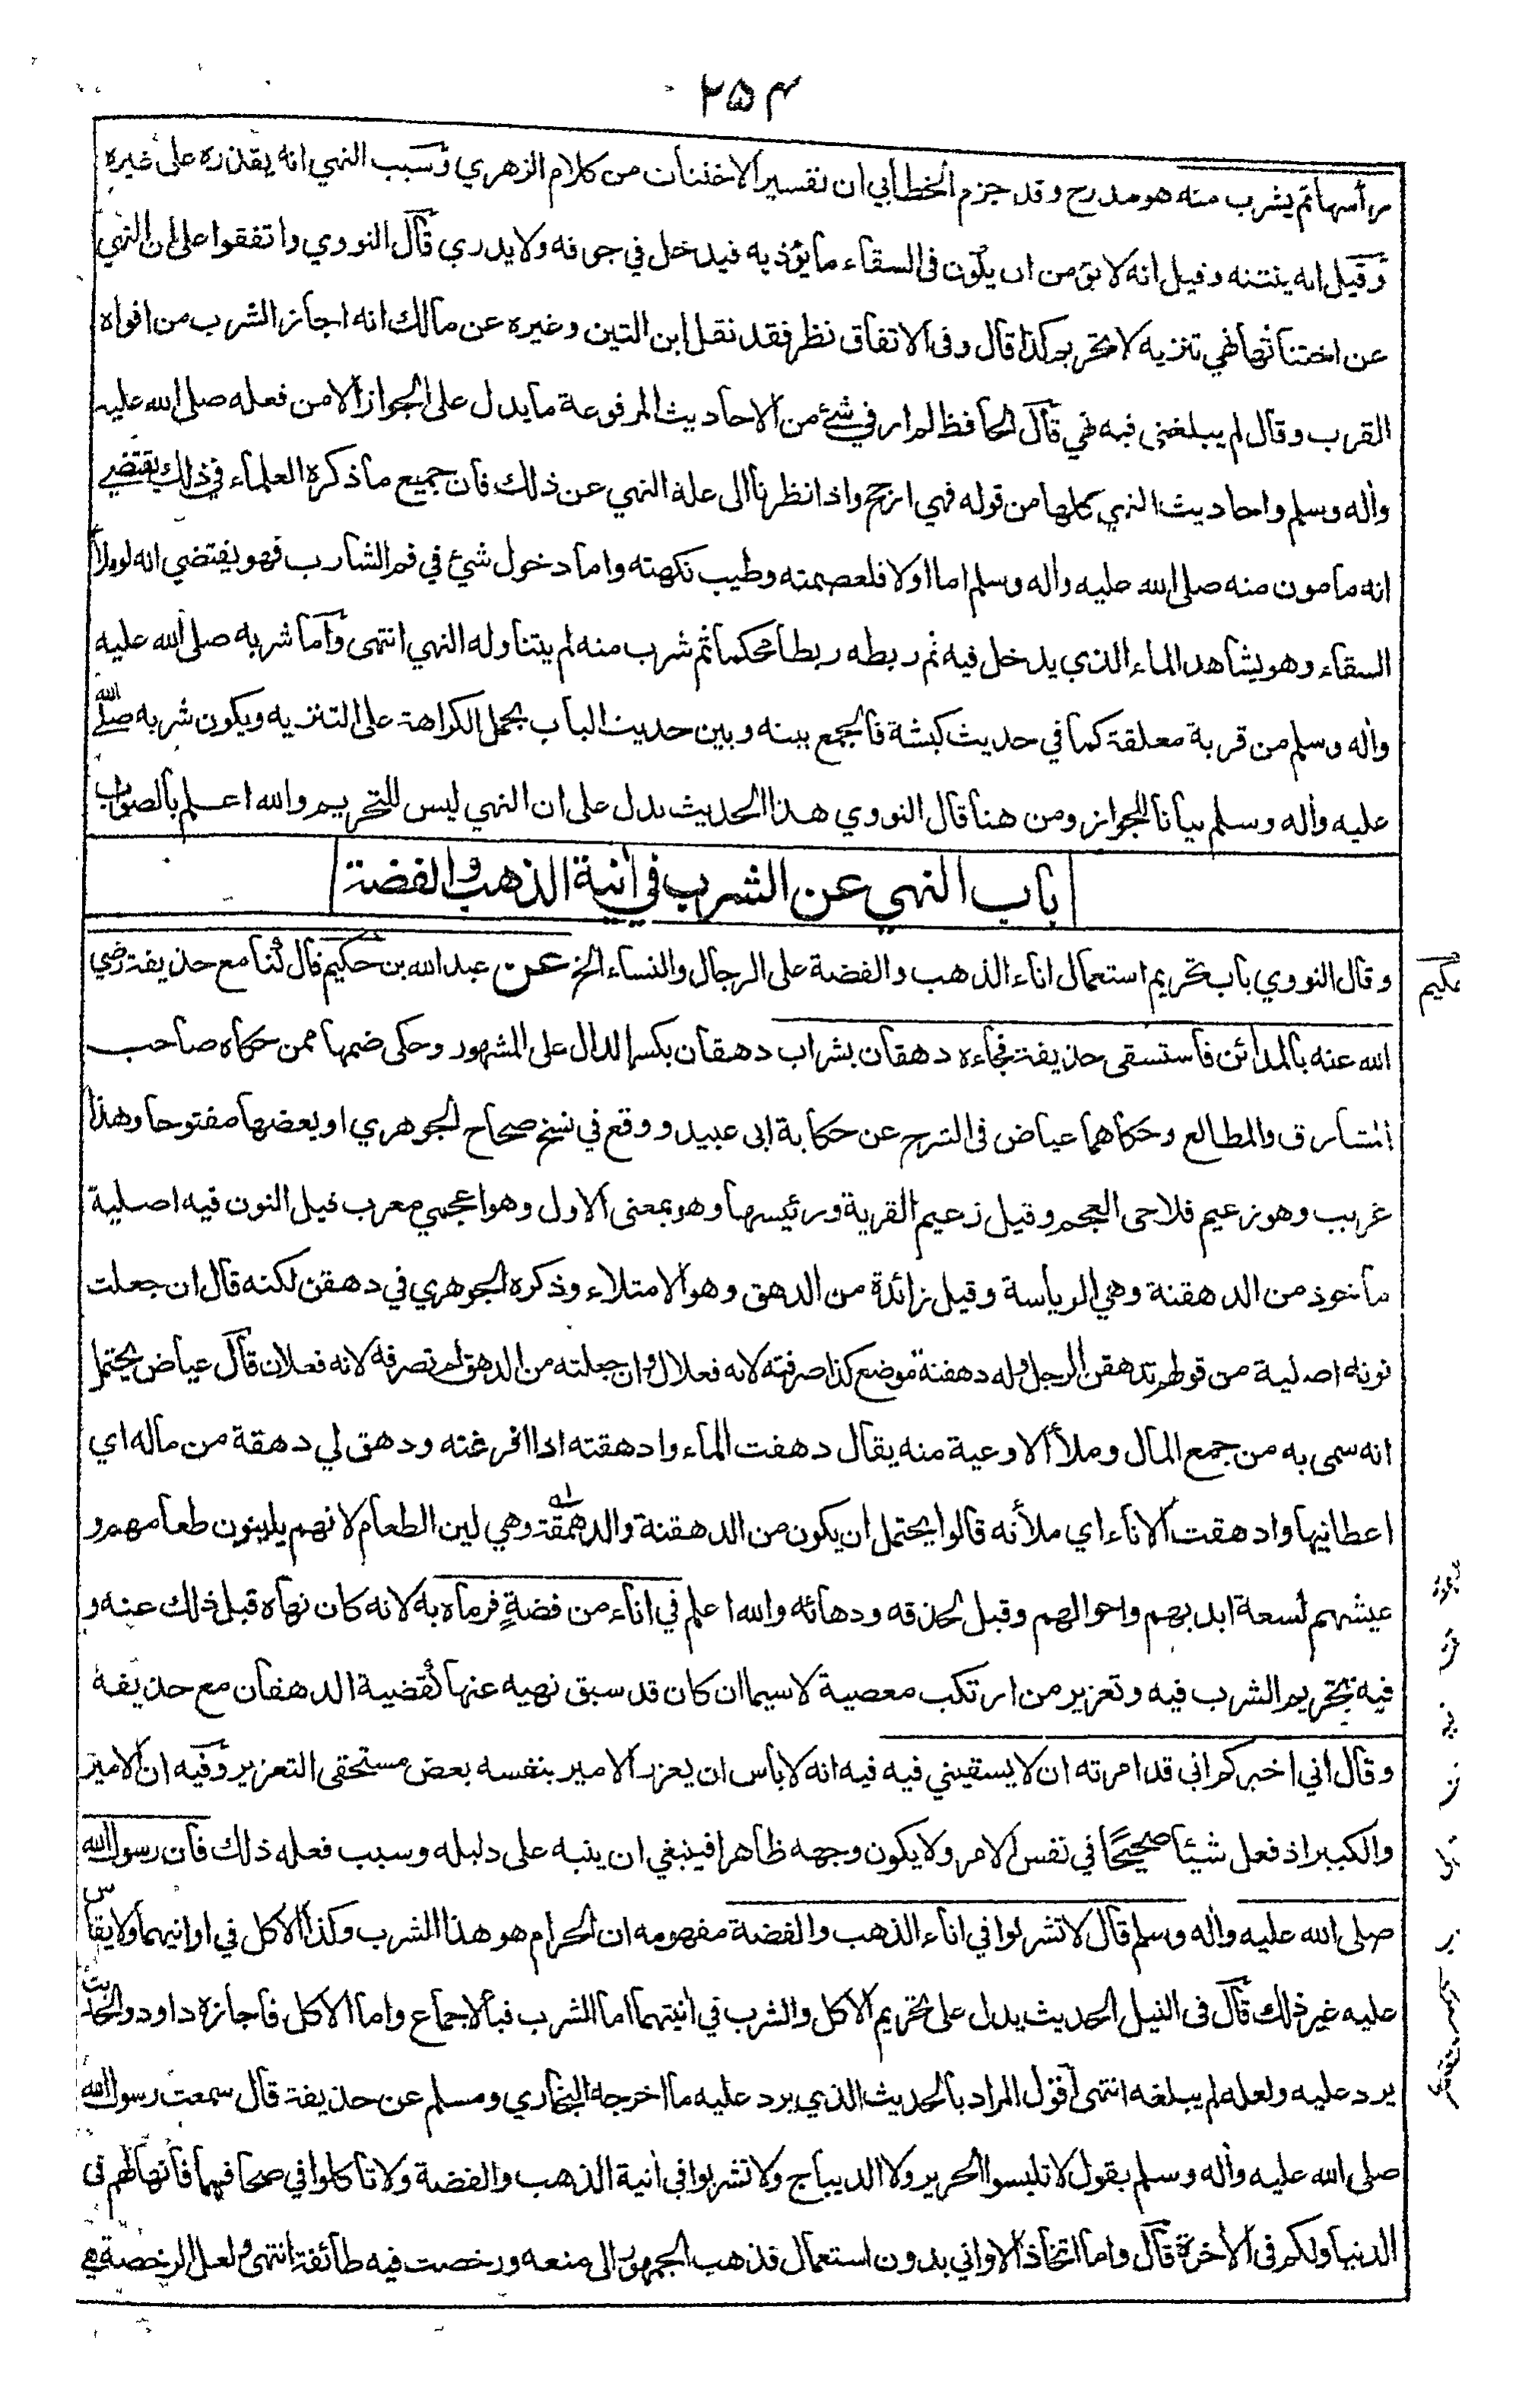 ٢٥٤
رأسها ثم يشرب منه هو مدرج وقد جزم الخطابي ان تفسير الاختناث من كلام الزهري وسبب النهي انه يقذره على غيره
وقيل انه ينتنه وقيل انه لا يؤمن ان يكون فى السقاء ما يؤذيه فيدخل في جوفه ولا يدري قال النووي واتفقوا على ان النهي
عن اختناثها نهي تنزيه لا تحريم كذا قال وفى الاتفاق نظر فقد نقل ابن التين وغيره عن مالك انه اجاز الشرب من افواه
القرب وقال لم يبلغني فيه نهي قال الحافظ لم ار في شئ من الاحاديث المرفوعة ما يدل على الجواز الا من فعله صلى الله عليه
وأله وسلم واحاديث النهي كلها من قوله فهي ارجح واذا نظرنا الى علة النهي عن ذلك فان جميع ما ذكره العلماء في ذلك يقتضي
انه مامون منه صلى الله عليه وأله وسلم اما اولا فلعصمته وطيب نكهته واما دخول شئ في فم الشارب فهو يقتضي انه لو ملأ
السقاء وهو يشاهد الماء الذي يدخل فيه ثم ربطه ربطا محكما ثم شرب منه لم يتناوله النهي انتهى وأما شربه صلى الله عليه
وأله وسلم من قربة معلقة كما في حديث كبشة فالجمع بينه وبين حديث الباب بحمل الكراهة على التنزيه ويكون شربه صلى الله
عليه وأله وسلم بيانا للجواز ومن هنا قال النووي هذا الحديث يدل على ان النهي ليس للتحريم والله اعلم بالصواب
باب النهي عن الشرب في أنية الذهب والفضة
وقال النووي باب تحريم استعمال اناء الذهب والفضة على الرجال والنساء الخ عن عبد الله بن حكيم قال كنا مع حذيفة رضي
الله عنه بالمدائن فاستسقى حذيفة فجاءه دهقان بشراب دهقان بكسر الدال على المشهور وحكى ضمها ممن حكاه صاحب
المشارق والمطالع وحكاهما عياض فى الشرح عن حكاية ابى عبيد ووقع في نسخ صحاح الجوهري او بعضها مفتوحا وهذا
غريب وهو زعيم فلاحى العجم وقيل زعيم القرية ورئيسها وهو بمعنى الاول وهو اعجمي معرب قيل النون فيه اصلية
ماخوذ من الدهقنة وهي الرياسة وقيل زائدة من الدهق وهو الامتلاء وذكره الجوهري في دهقن لكنه قال ان جعلت
نونه اصلية من قولهم تدهقن الرجل وله دهقنة موضع كذا صرفته لانه فعلال وان جعلته من الدهق لم تصرفه لانه فعلان قال عياض يحتمل
انه سمى به من جمع المال وملأ الاوعية منه يقال دهقت الماء وادهقته اذا افرغته ودهق لي دهقة من ماله اي
اعطانيها وادهقت الاناء اي ملأته قالوا يحتمل ان يكون من الدهقنة والدهمقة وهي لين الطعام لانهم يلينون طعامهم و
عيشهم لسعة ايديهم واحوالهم وقيل لحذقه ودهائه والله اعلم في اناء من فضةٍ فرماه به لانه كان نهاه قبل ذلك عنه و
فيه تحريم الشرب فيه وتعزير من ارتكب معصية لا سيما ان كان قد سبق نهيه عنها كقضية الدهقان مع حذيفة
وقال اني اخبركم انى قد امرته ان لا يسقيني فيه فيه انه لا بأس ان يعزر الامير بنفسه بعض مستحقى التعزير وفيه ان الامير
والكبير اذ فعل شيئا صحيحًا في نفس الامر ولا يكون وجهه ظاهرا فينبغي ان ينبه على دليله وسبب فعله ذلك فان رسول الله
صلى الله عليه وأله وسلم قال لا تشربوا في اناء الذهب والفضة مفهومه ان الحرام هو هذا الشرب وكذا الاكل في اوانيهما ولا يقاس
عليه غير ذلك قال فى النيل الحديث يدل على تحريم الاكل والشرب في أنيتهما اما الشرب فبالاجماع واما الاكل فاجازه داود والحديث
يرد عليه ولعله لم يبلغه انتهى أقول المراد بالحديث الذي يرد عليه ما اخرجه البخاري ومسلم عن حذيفة قال سمعت رسول الله
صلى الله عليه وأله وسلم يقول لا تلبسوا الحرير ولا الديباج ولا تشربوا في أنية الذهب والفضة ولا تأكلوا في صحافهما فانها لهم فى
الدنيا ولكم فى الأخرة قال واما اتخاذ الاواني بدون استعمال فذهب الجمهور الى منعه ورخصت فيه طائفة انتهى ولعل الرخصة هي